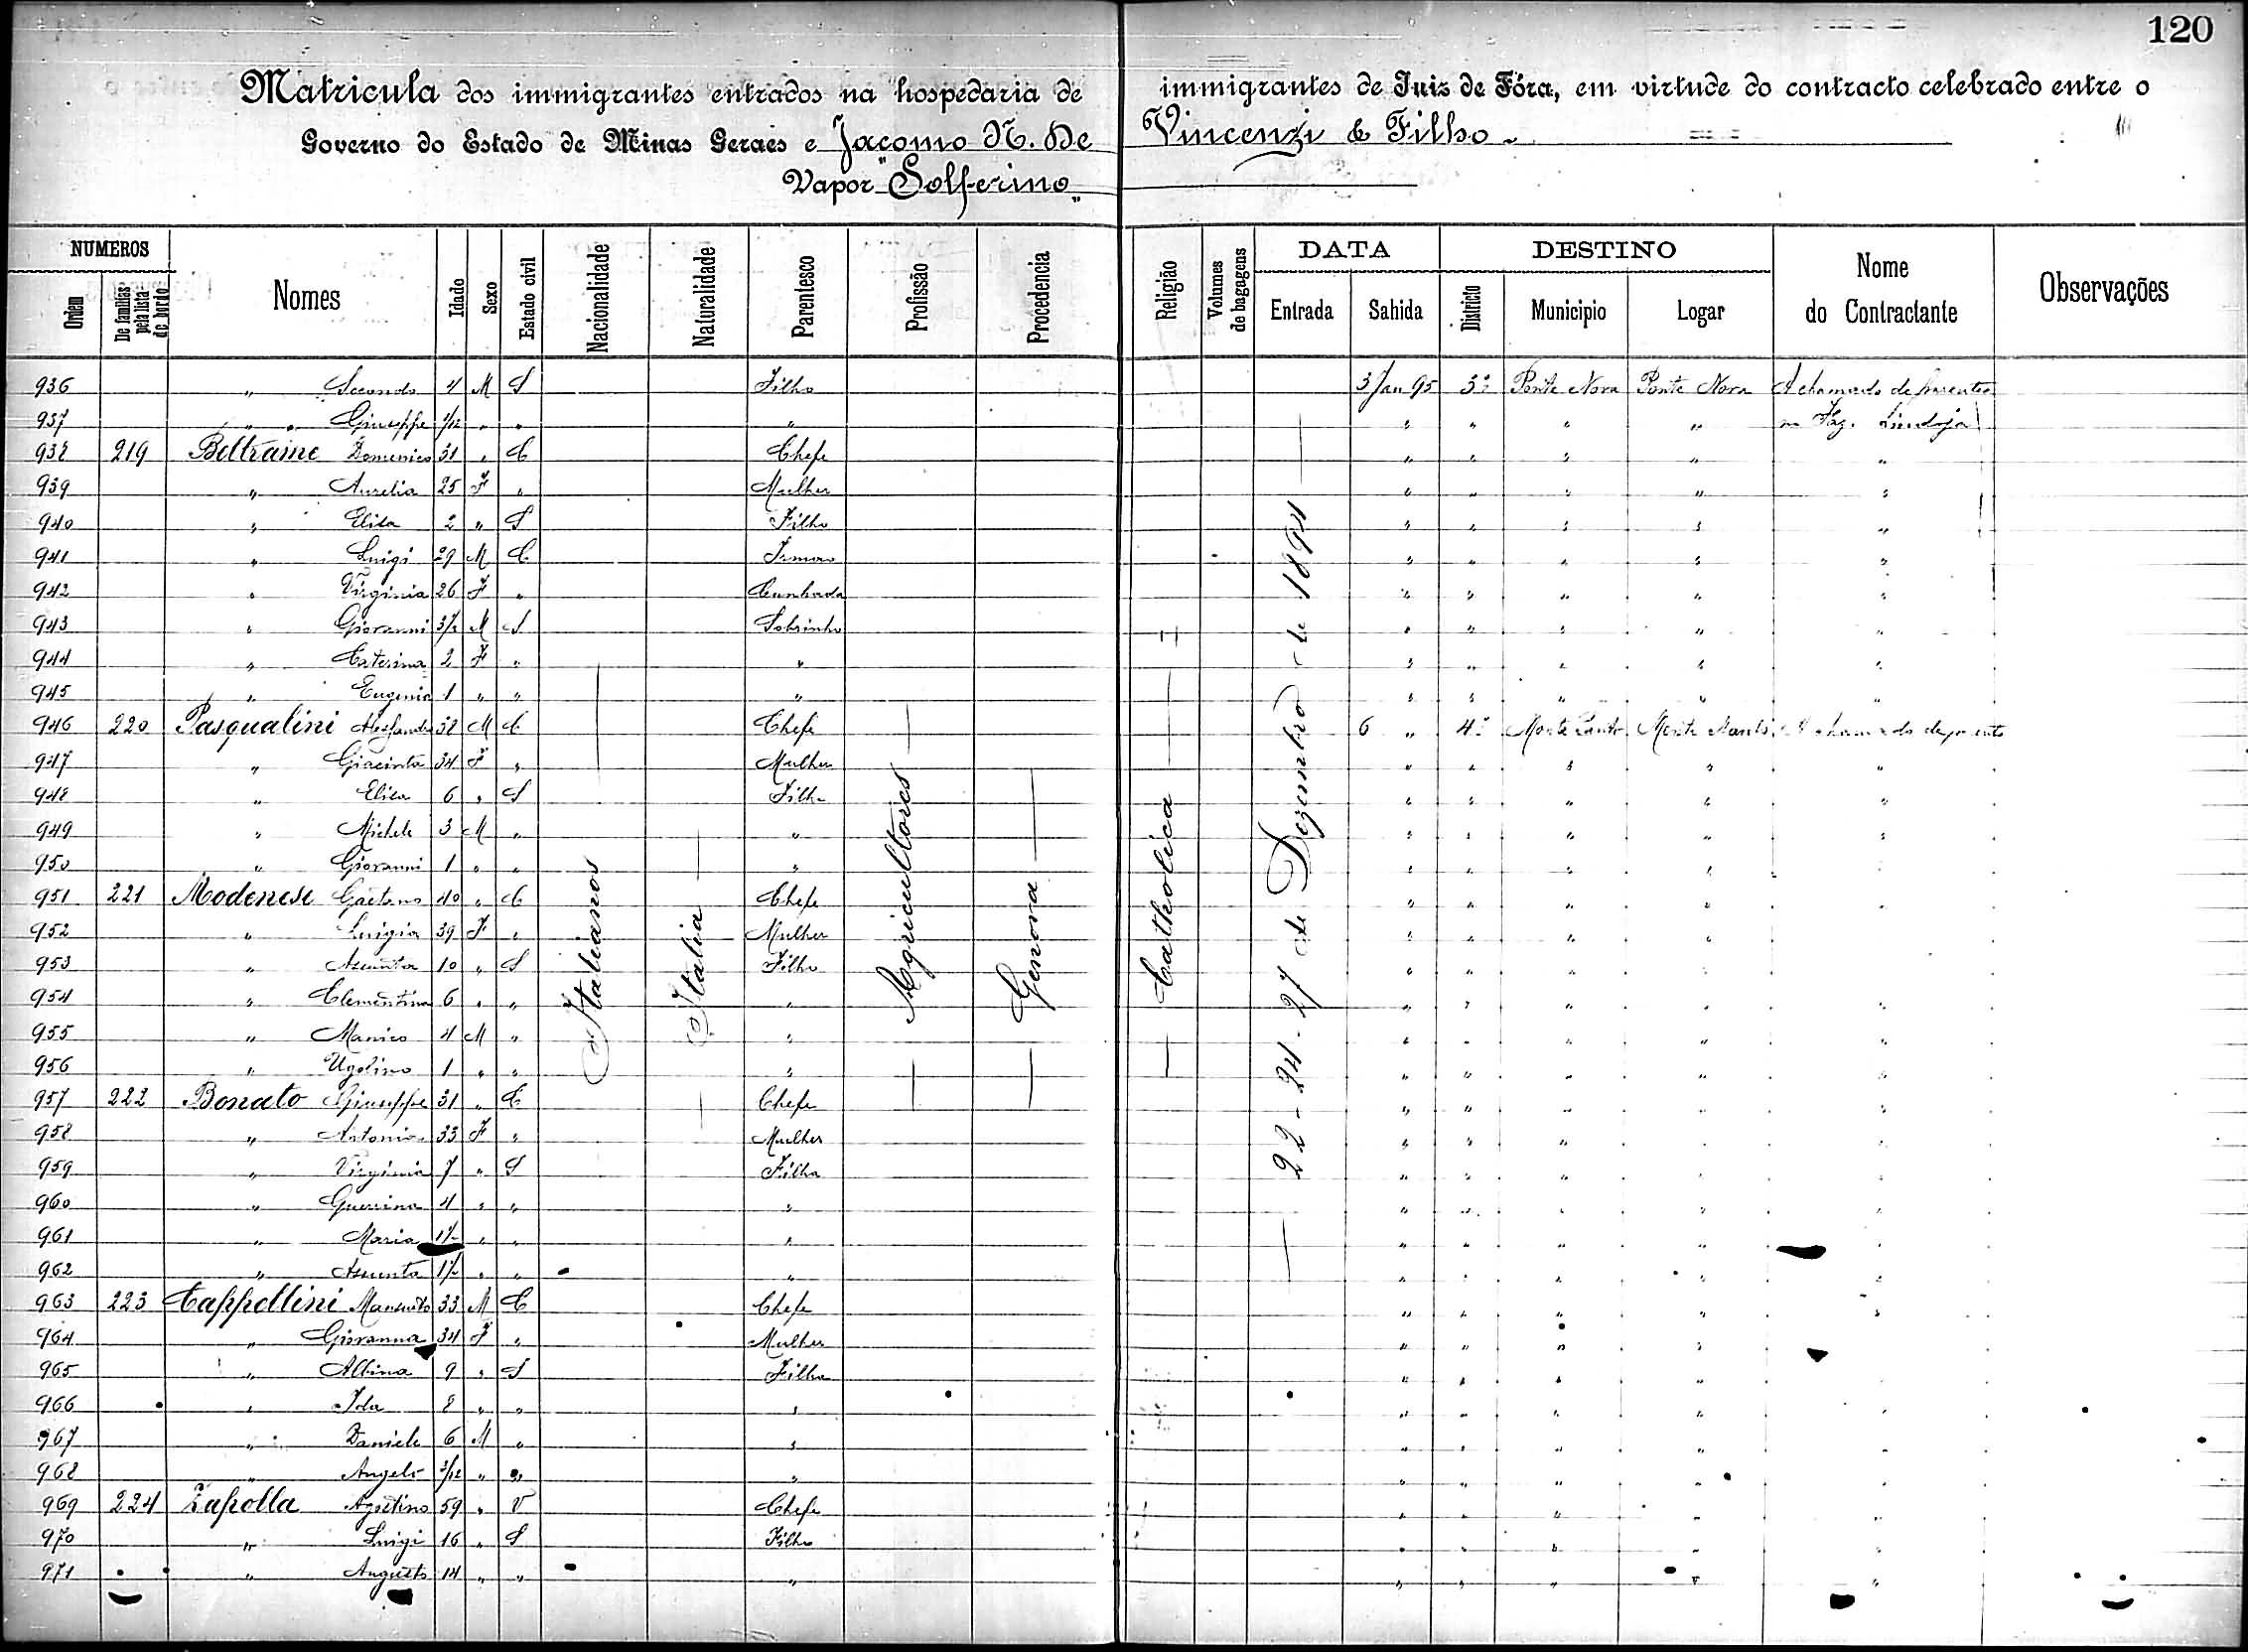 120
Matricula dos immigrantes entrados na hospedaria de immigrantes de Juiz de Fóra, em virtude do contracto celebrado entre o
Governo do Estado de Minas Geraes e Jacomo N. De Vincenzi & Filho
Vapor "Solferino"
NUMEROS DATA DESTINO
Ordem De familias pela lista de bordo Nomes Idade Sexo Estado civil Nacionalidade Naturalidade Parentesco Profissão Procedencia Religião Volumes de bagagens Entrada Sahida Districto Municipio Logar Nome do Contractante Observações
936 " Secondo 4 M S Filho 3 Jan 95 3º Ponte Nova Ponte Nova A chamado de parentes
937 " " Giuseppe " " " " " " " Faz.
938 219 Beltrame Domenico 31 " C Chefe " " " " "
939 " Aurelia 25 F " Mulher " " " " "
940 " Elisa 2 " S Filho " " " " "
941 " Luigi 29 M C Irmão " " " " "
942 " Virginia 26 F " Cunhada " " " " "
943 " Giovanni M S Sobrinho " " " " "
944 " Caterina 2 F " " " " " " "
945 " Eugenia 1 " " " " " " " "
946 220 Pasqualini Alessandro 38 M C Chefe 6 " 4º Monte Santo Monte Santo A chamado de parente
947 " Giacinta 34 F " Mulher " " " " "
948 " Elisa 6 " S Filha " " " " "
949 " Michele 3 M " " " " " " "
950 " Giovanni 1 " " " " " " " "
951 221 Modenese Gaetano 40 " C Chefe " " " " "
952 " Luigia 39 F " Mulher " " " " "
953 " Assunta 10 " S Filho " " " " "
954 " Clementina 6 " " " " " " " "
955 " 4 M " " " " " " "
956 " Ugolino 1 " " " " " " " "
957 222 Bonato Giuseppe 31 " C Chefe " " " " "
958 " Antonia 33 F " Mulher " " " " "
959 " Virginia 7 " S Filha " " " " "
960 " Guerrina 4 " " " " " " " "
961 " Maria " " " " " " " "
962 " Assunta " " " " " " " "
963 223 Cappellini Mansueto 33 M C Chefe " " " " "
964 " Giovanna 34 F " Mulher " " " " "
965 " Albina 9 " S Filha " " " " "
966 " Ida 8 " " " " " " " "
967 " Daniele 6 M " " " " " " "
968 " Angelo " " " " " " " "
969 224 Zapolla Agostino 59 " V Chefe " " " " "
970 " Luigi 16 " S Filho " " " " "
971 " Augusto 14 " " " " " " " "
Italianos
Italia
Agricultores
Genova
Catholica
22 - 24 - 27 de Dezembro de 1894